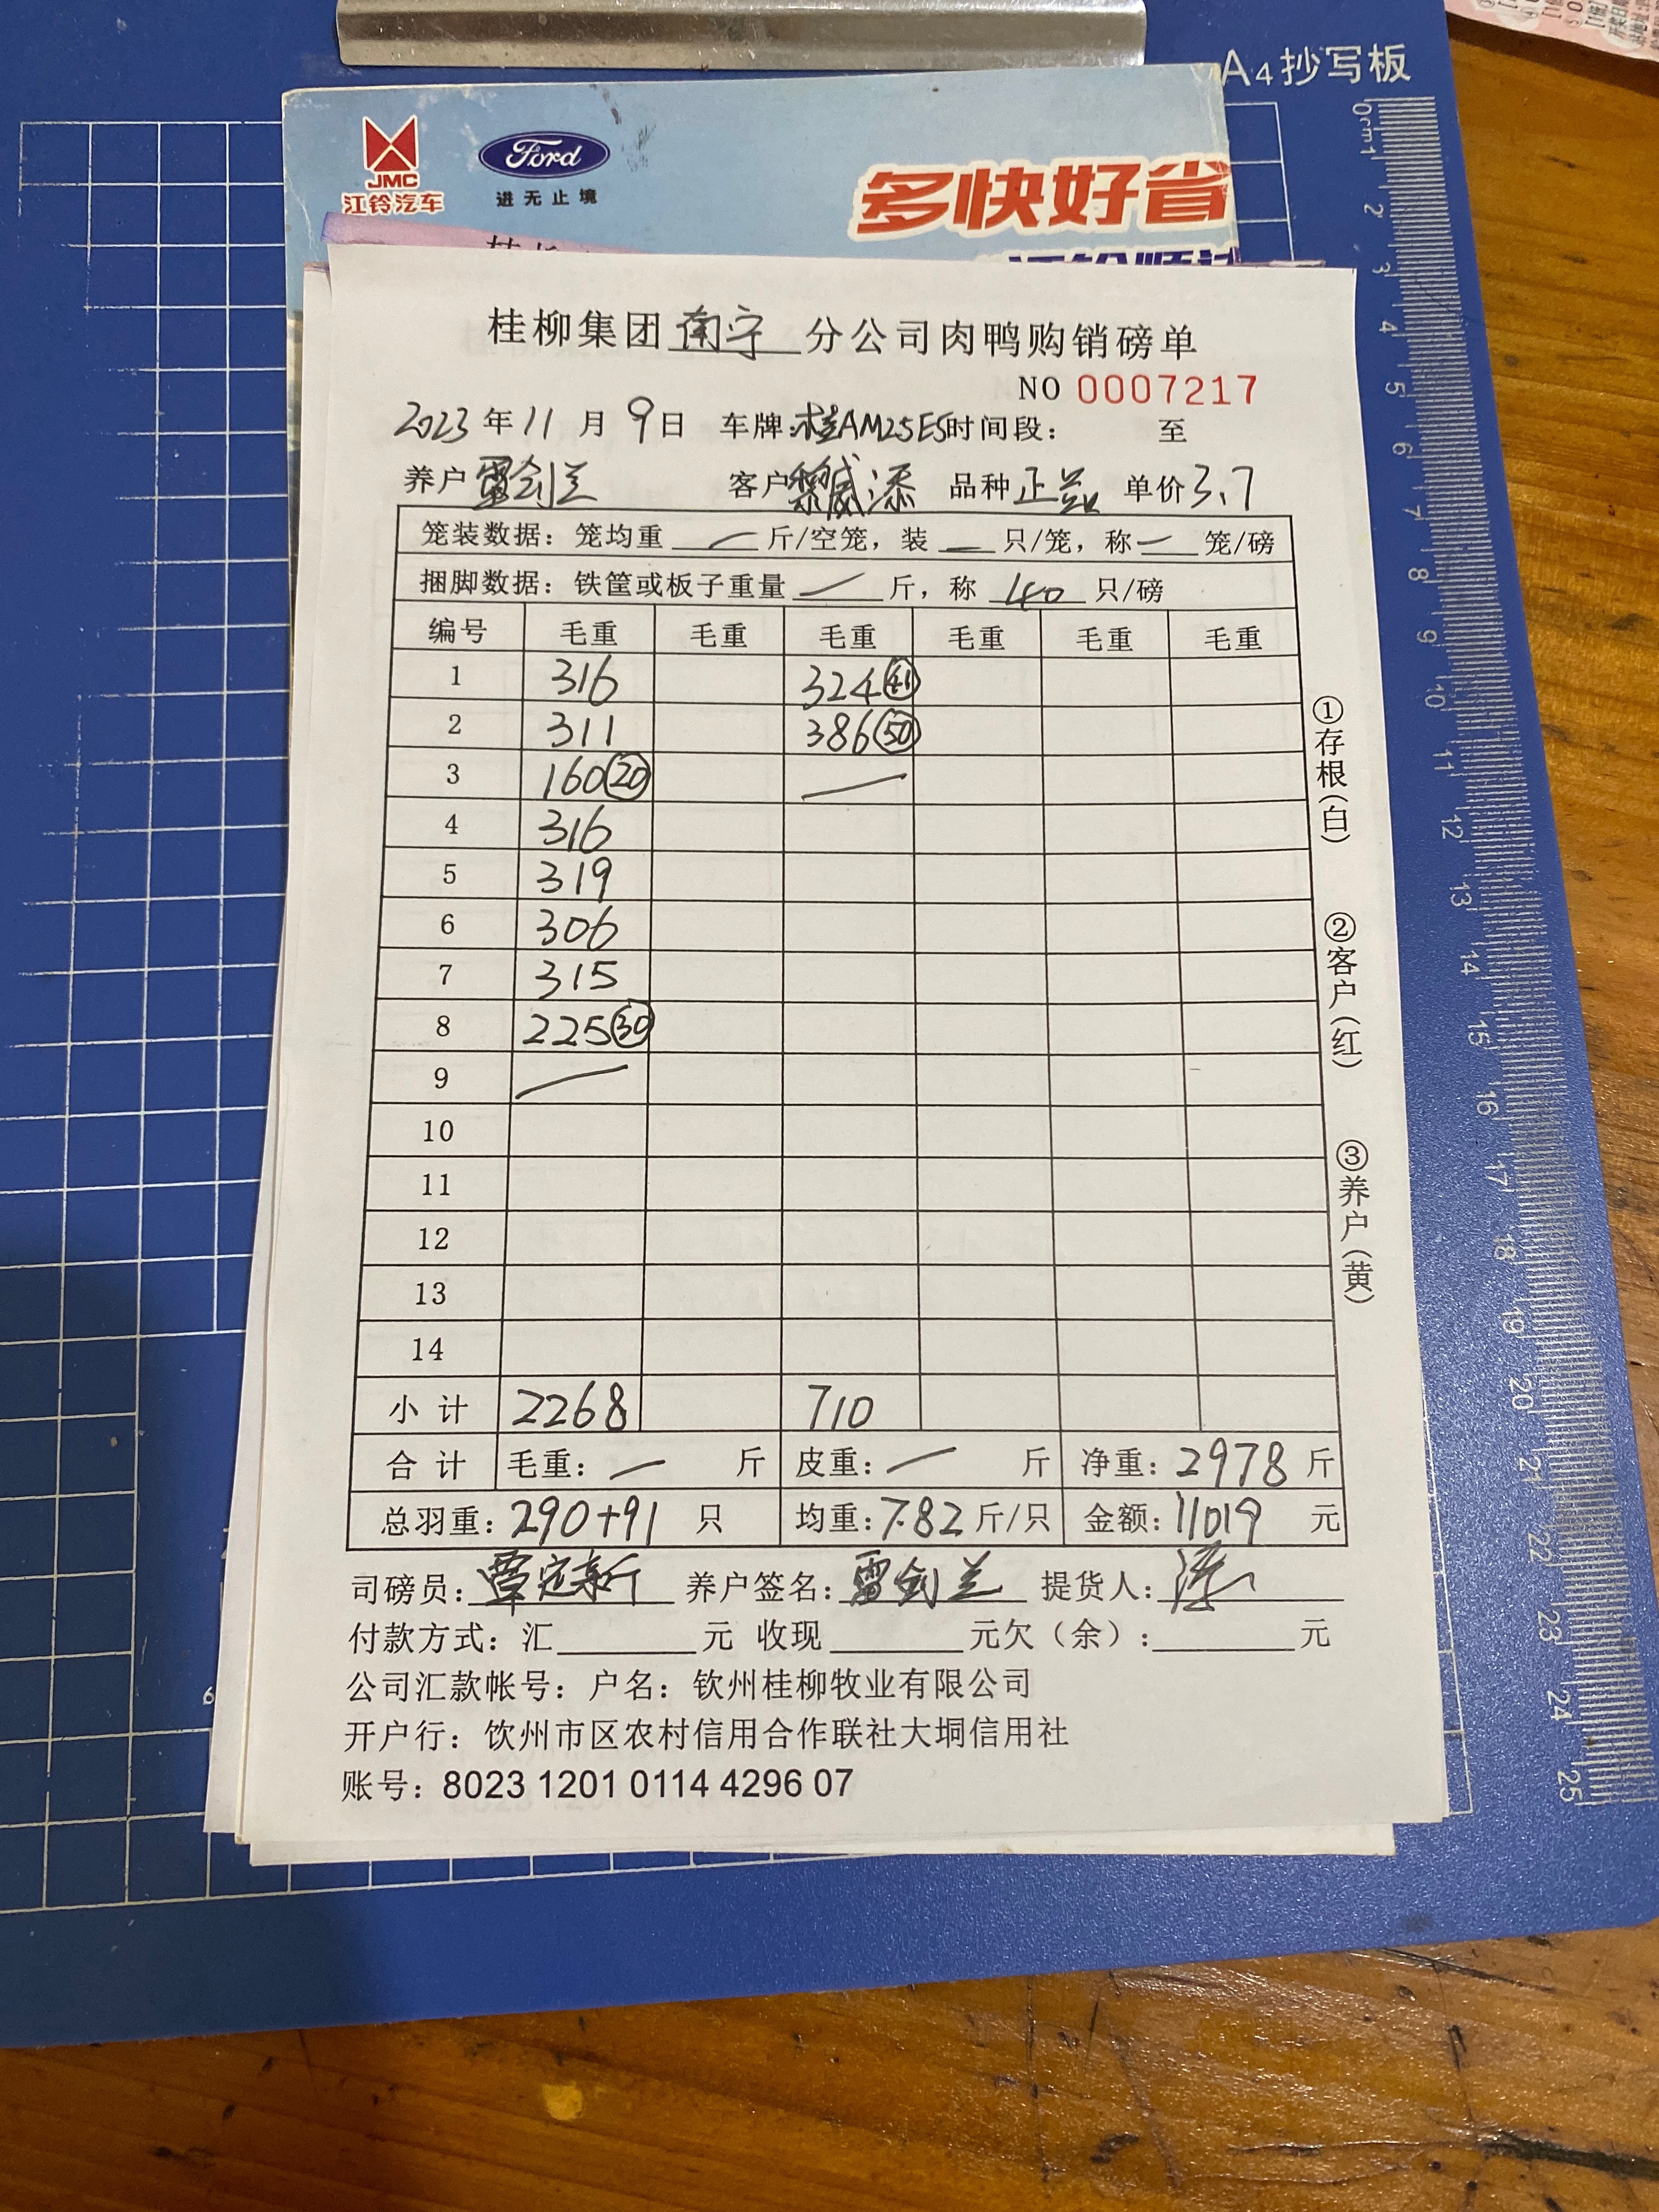 A4抄写板
JMC
江铃汽车
Ford
进无止境
多快好省
桂柳集团南宁分公司肉鸭购销磅单
NO 0007217
2023年11月9日 车牌:桂AM25E5时间段: 至
养户雷剑兰 客户黎威添 品种正益 单价3.7
笼装数据：笼均重 — 斤/空笼，装 — 只/笼，称 — 笼/磅
捆脚数据：铁筐或板子重量 — 斤，称 40 只/磅
编号 毛重 毛重 毛重 毛重 毛重 毛重
1 316 324㊶
2 311 386㊿
3 160⑳ —
4 316
5 319
6 306
7 315
8 225㉚
9 —
10
11
12
13
14
小计 2268 710
合计 毛重：— 斤 皮重：— 斤 净重：2978 斤
总羽重：290+91 只 均重：7.82 斤/只 金额：11019 元
司磅员：覃定新 养户签名：雷剑兰 提货人：
付款方式：汇 元 收现 元欠（余）： 元
公司汇款帐号：户名：钦州桂柳牧业有限公司
开户行：饮州市区农村信用合作联社大垌信用社
账号：8023 1201 0114 4296 07
①存根（白）
②客户（红）
③养户（黄）
0cm1 2 3 4 5 6 7 8 9 10 11 12 13 14 15 16 17 18 19 20 21 22 23 24 25